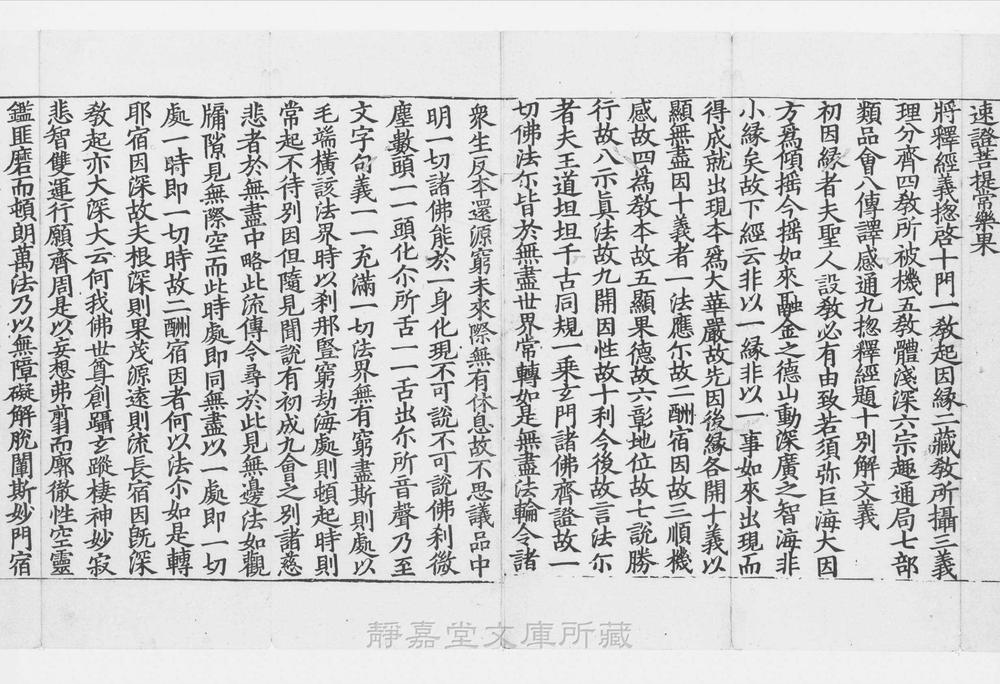 速證菩提常樂果
將釋經義揔啓十門一教起因縁二藏教所攝三義
理分齊四教所被機五教體淺深六宗趣通局七部
類品會八傳譯感通九揔釋經題十别解文義
初因緣者夫聖人設教必有由致若須弥巨海大因
方爲傾摇今摇如來融金之德山動深廣之智海非
小縁矣故下經云非以一縁非以一事如來出現而
得成就出現本爲大華嚴故先因後縁各開十義以
顯無盡因十義者一法應尓故二酬宿因故三順機
感故四爲教本故五顯果德故六彰地位故七説勝
行故八示真法故九開因性故十利今後故言法尓
者夫王道坦坦千古同規一乗玄門諸佛齊證故一
切佛法尓皆於無盡世界常轉如是無盡法輪令諸
衆生反本還源窮未來際無有休息故不思議品中
明一切諸佛能於一身化現不可説不可説佛刹微
塵數頭一一頭化尓所舌一一舌出尓所音聲乃至
文字句義一一充滿一切法界無有窮盡斯則處以
毛端横該法界時以刹那竪窮劫海處則頓起時則
常起不待别因但隨見聞説有初成九會之别諸慈
悲者於無盡中略此流傳令尋於此見無邊法如觀
牖隙見無際空而此時處即同無盡以一處即一切
處一時即一切時故二酬宿因者何以法尓如是轉
耶宿因深故夫根深則果茂源遠則流長宿因旣深
教起亦大深大云何我佛世尊創躡玄蹤棲神妙寂
悲智雙運行願齊周是以妄想弗翦而廓徹性空靈
鑑匪磨而頓朗萬法乃以無障礙解脱闡斯妙門宿
靜嘉堂文庫所藏